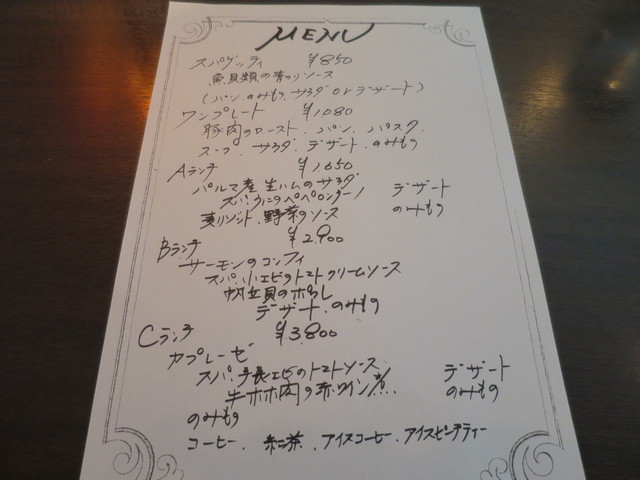 MENU
スパゲッティ ¥850
魚貝類の青のりソース
(パン、のみもの、サラダ or デザート)
ワンプレート ¥1,080
豚肉のロースト、パン、パスタ、
スープ、サラダ、デザート、のみもの
Aランチ ¥1,650
パルマ産生ハムのサラダ デザート
スパ、うにのペペロンチーノ のみもの
リゾット、野菜のソース
Bランチ ¥2,900
サーモンのコンフィ
スパ、小エビのトマトクリームソース
帆立貝の
デザート、のみもの
Cランチ ¥3,800
カプレーゼ
スパ、手長エビのトマトソース デザート
牛ホホ肉の赤ワイン煮 のみもの
のみもの
コーヒー、紅茶、アイスコーヒー、アイスピーチティー